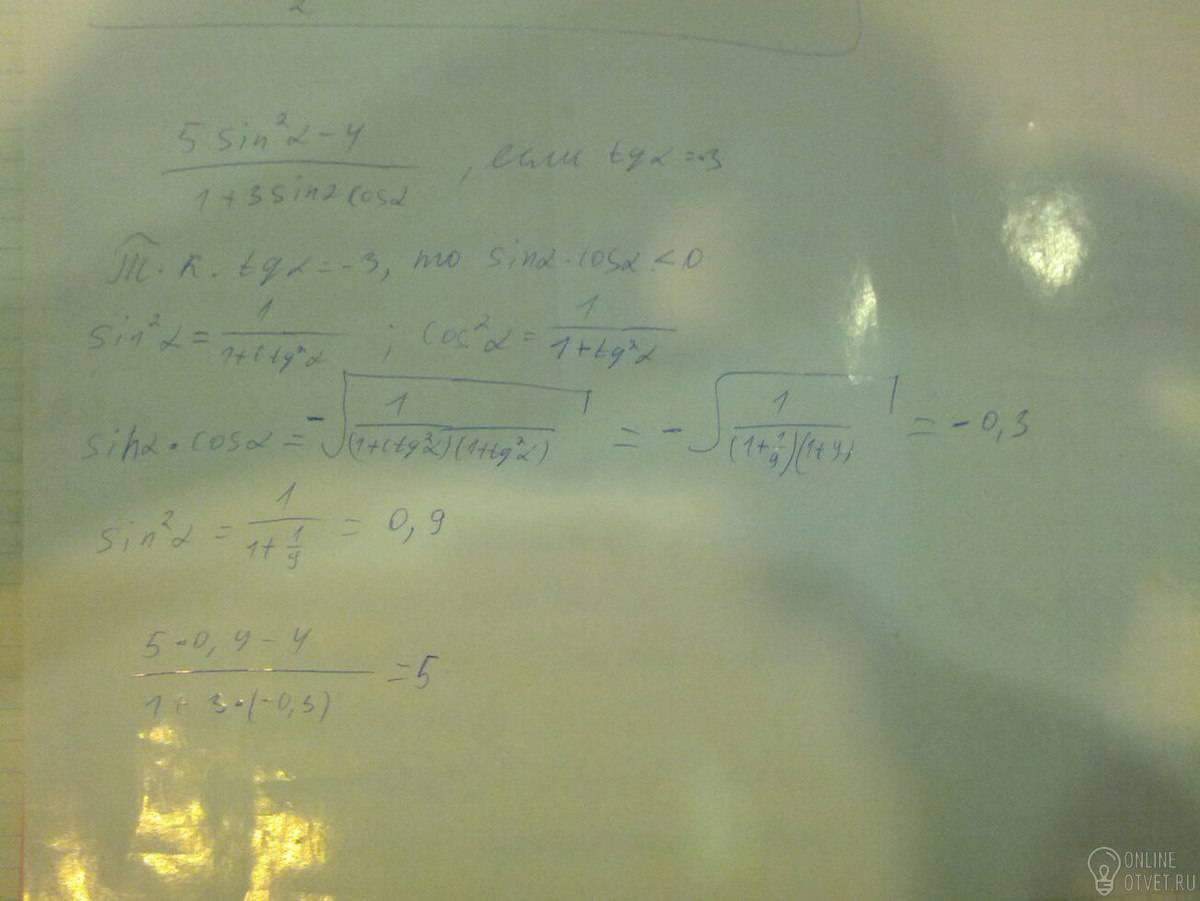 2
5 sin²α - 4
1 + 3 sinα cosα
, если tgα = -3
Т.к. tgα = -3, то sinα · cosα < 0
sin²α = 1/(1+ctg²α) ; cos²α = 1/(1+tg²α)
sinα · cosα = -√(1/((1+ctg²α)(1+tg²α))) = -√(1/((1+1/9)(1+9))) = -0,3
sin²α = 1/(1+1/9) = 0,9
5·0,9 - 4
1 + 3·(-0,3)
= 5
ONLINE
OTVET.RU